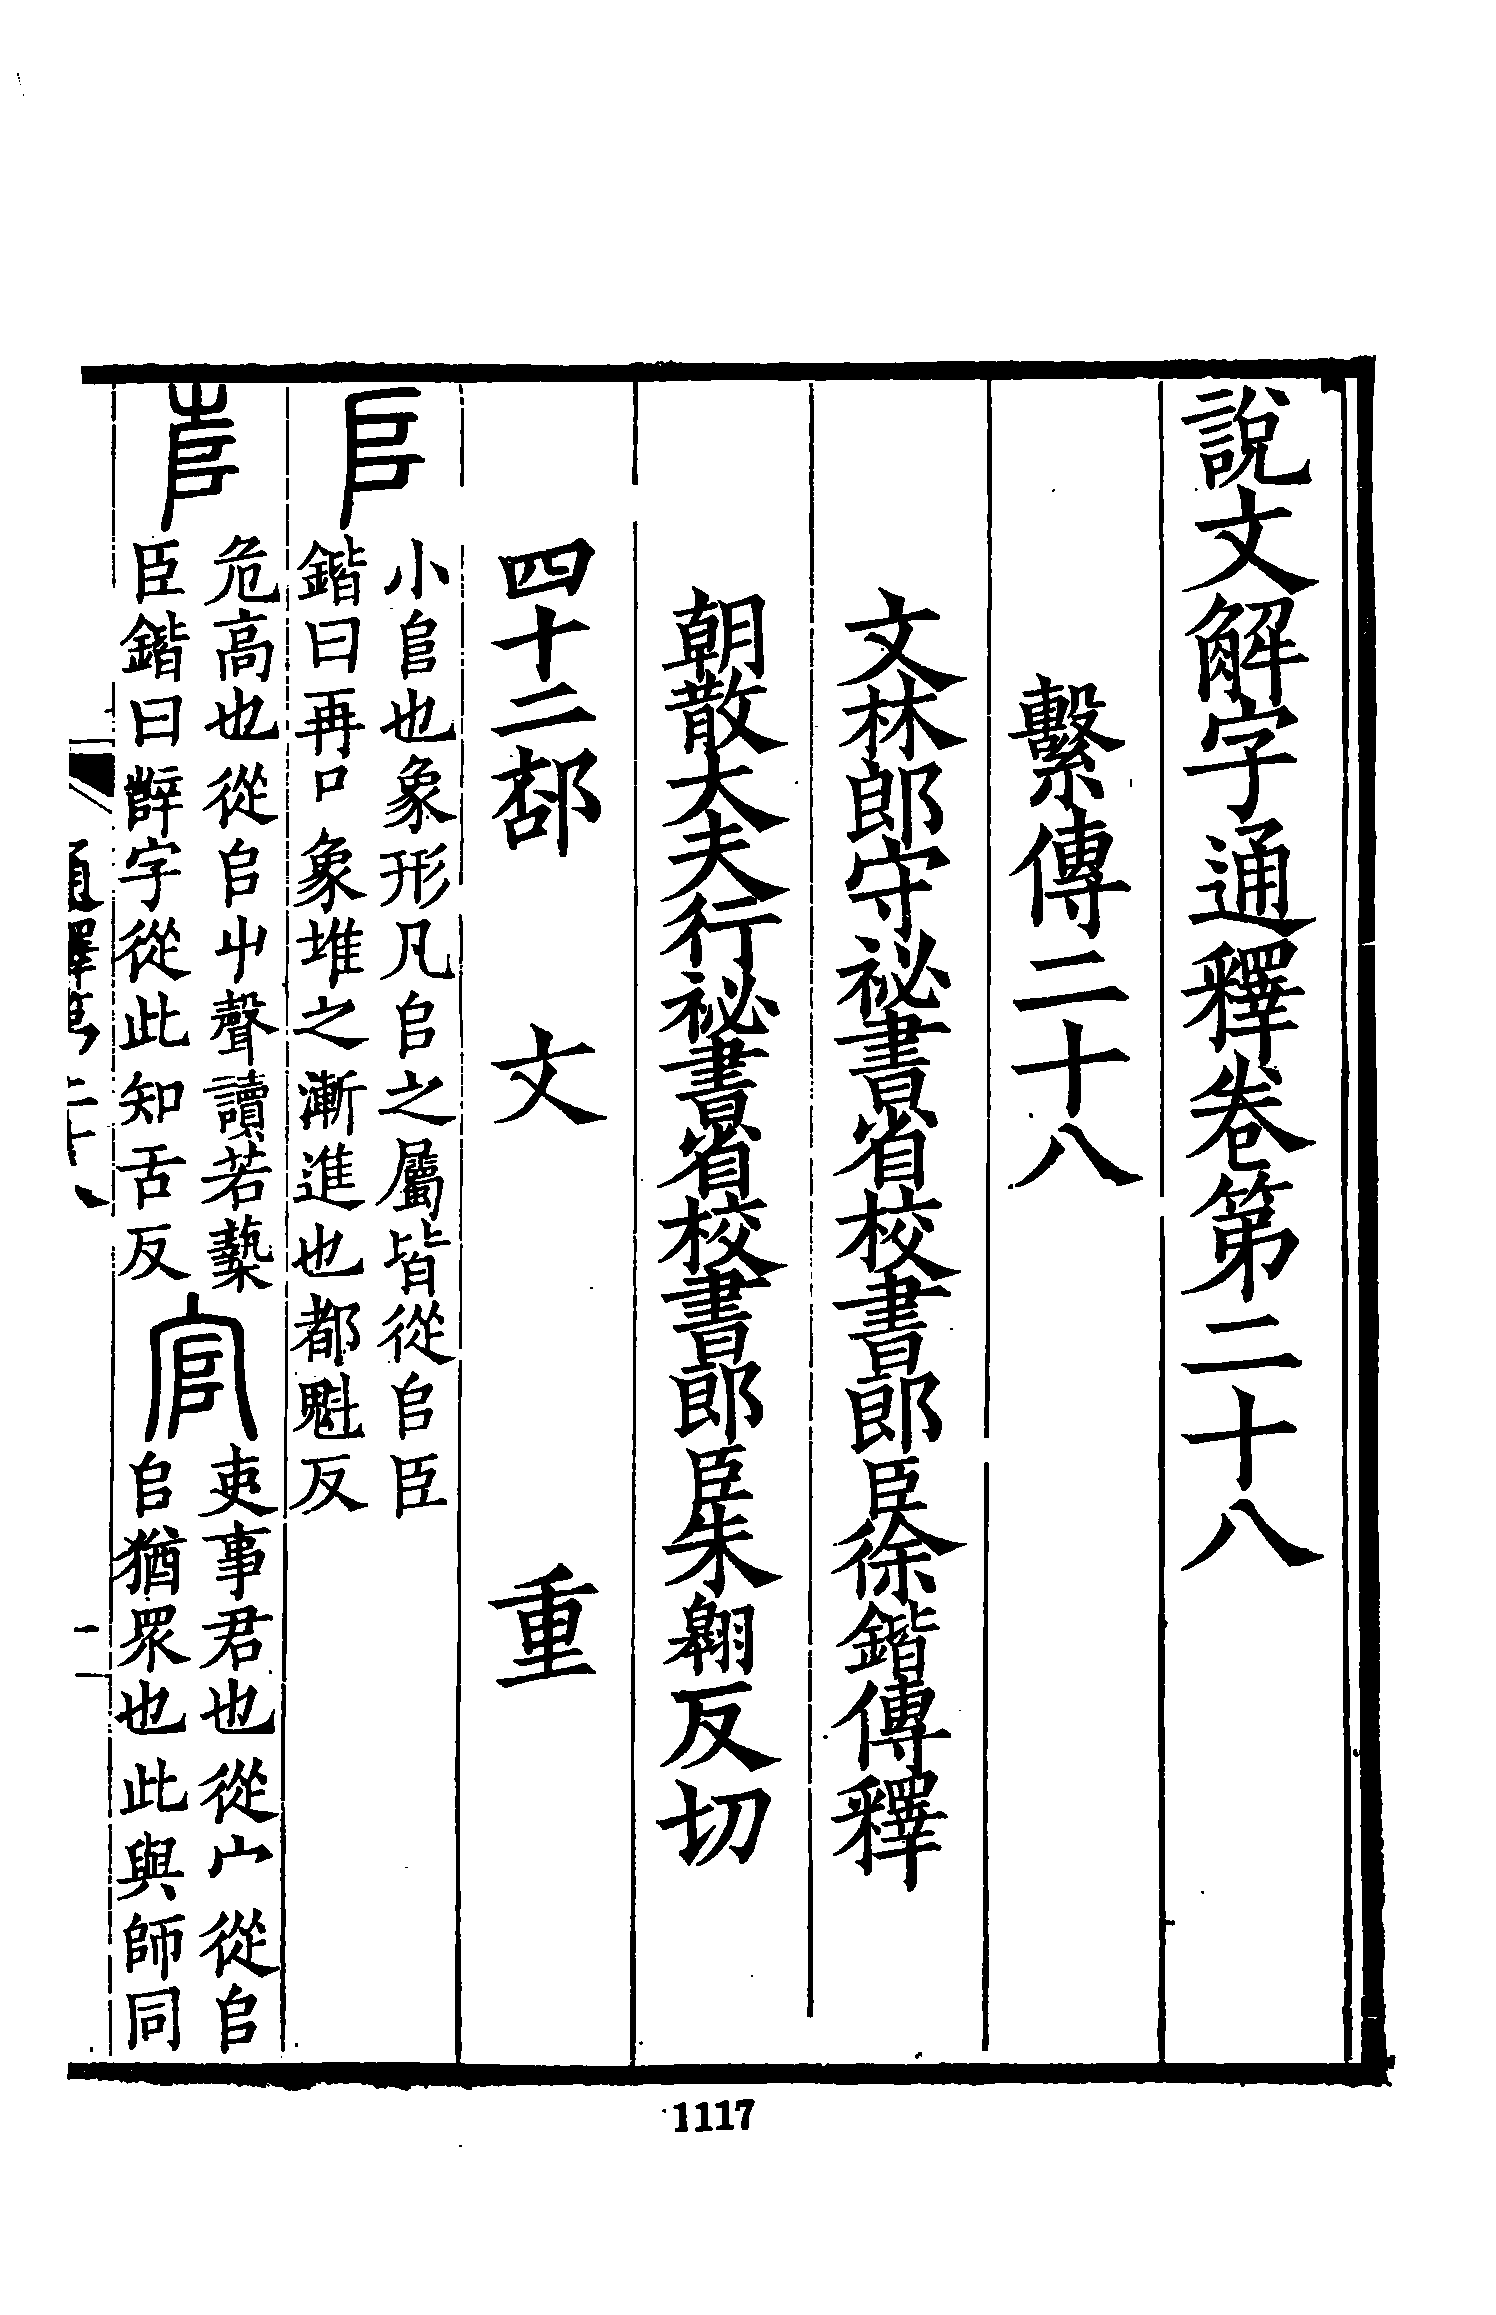 說文解字通釋卷第二十八
繫傳二十八
文林郎守祕書省校書郎臣徐鍇傳釋
朝散大夫行祕書省校書郎臣朱翱反切
四十二部　文　重
𠂤 小𨸏也象形凡𠂤之屬皆從𠂤臣
鍇曰再口象堆之漸進也都魁反
𡴎 危高也從𠂤屮聲讀若蓺
臣鍇曰辥字從此知舌反
官 吏事君也從宀從𠂤
𠂤猶眾也此與師同
通釋第二十八
一
1117